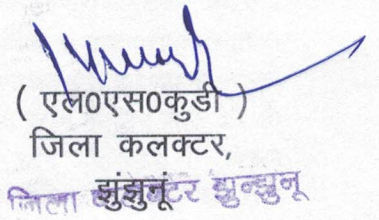 ( एल0एस0कुडी )
जिला कलक्टर,
झुंझुनूं
जिला कलक्टर झुन्झुनू